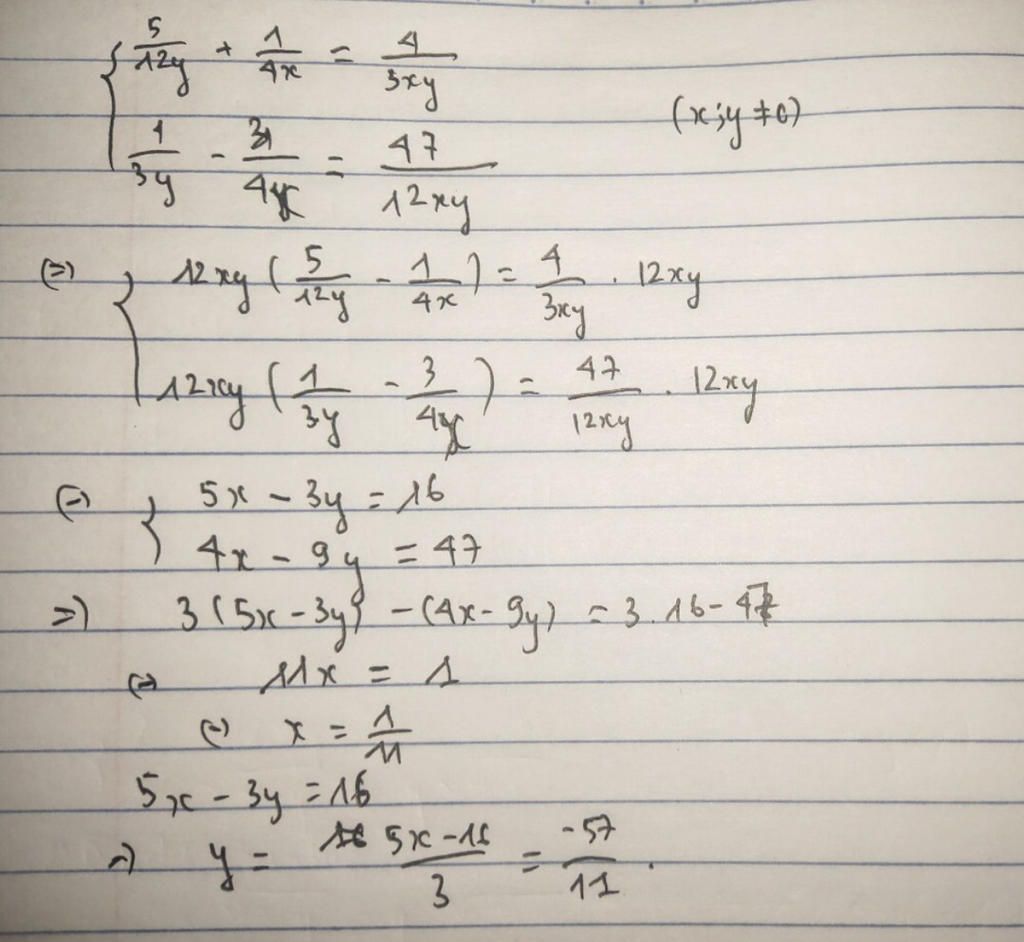 { 5/12y + 1/4x = 4/3xy
1/3y - 3/4x = 47/12xy (x;y ≠ 0)
(=) { 12xy ( 5/12y - 1/4x ) = 4/3xy . 12xy
12xy ( 1/3y - 3/4x ) = 47/12xy . 12xy
(=) { 5x - 3y = 16
4x - 9y = 47
=) 3 (5x - 3y) - (4x - 9y) = 3.16 - 47
(=) 11x = 1
(=) x = 1/11
5x - 3y = 16
=) y = 5x - 16/3 = -57/11 .